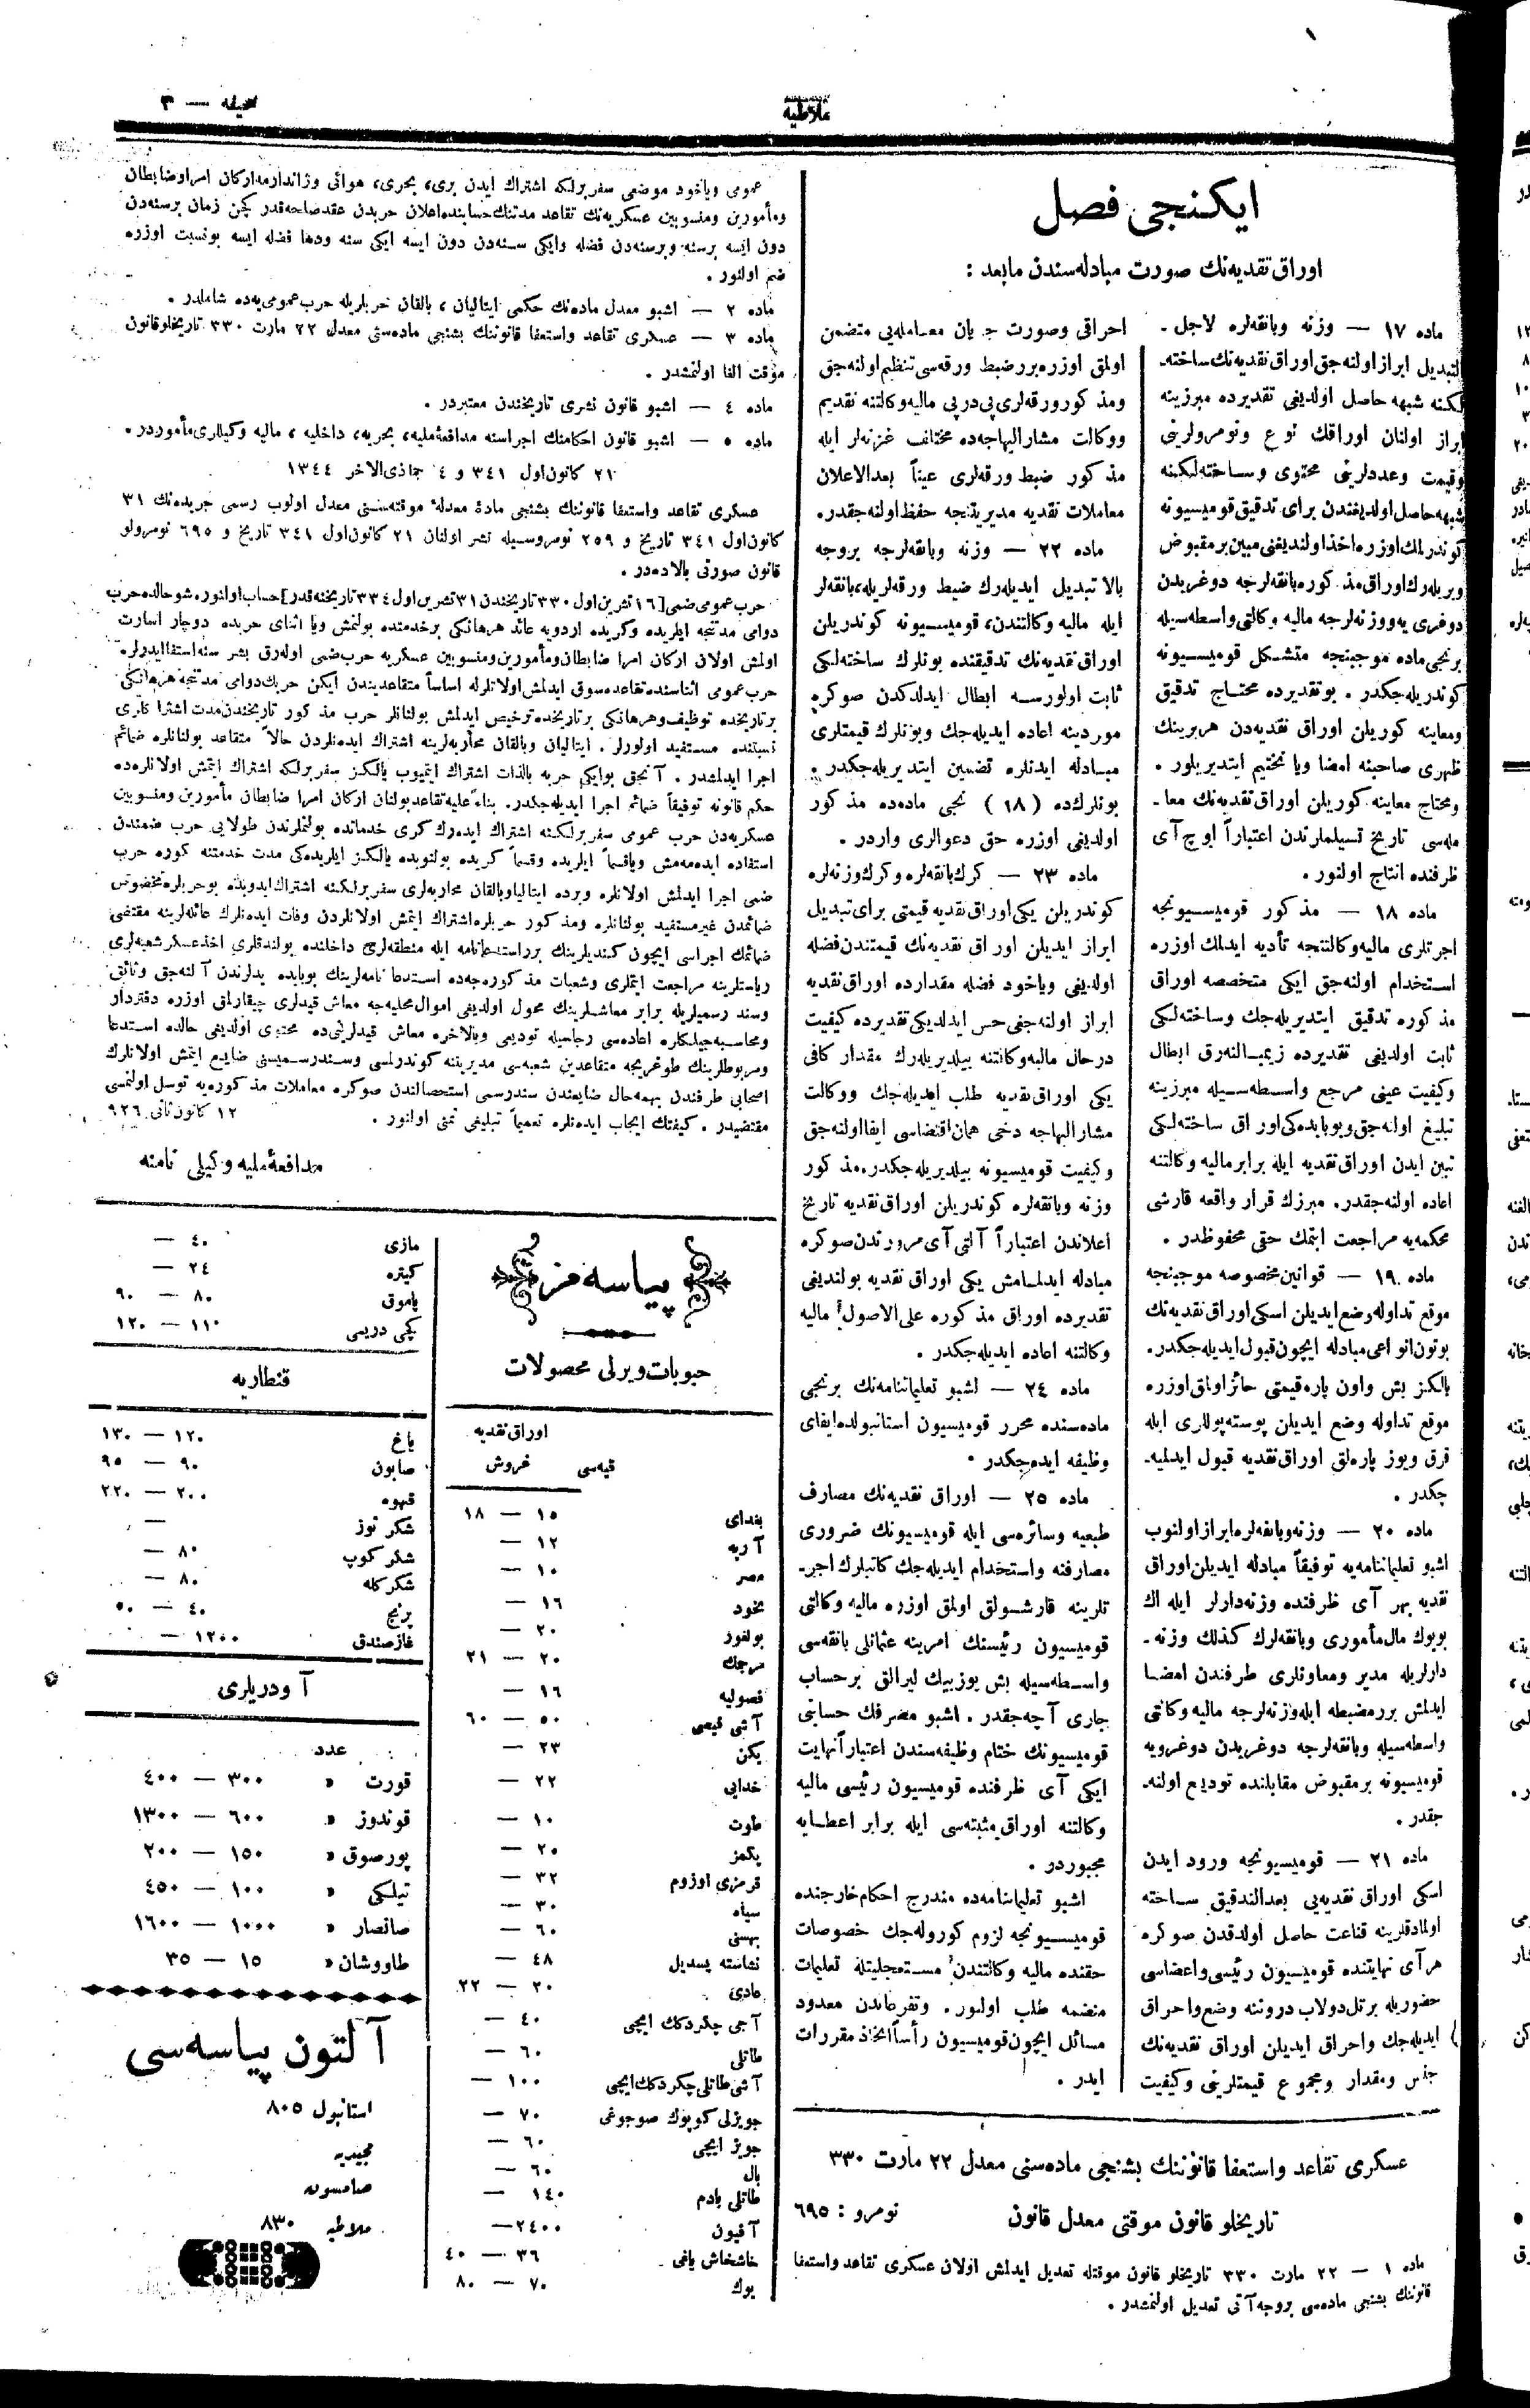 ملاطیه
صحیفه — ٣
ایكنجی فصل
اوراق نقدیه‌نك صورت مبادله‌سندن مابعد :
ماده ١٧ — وزنه وبانقه‌لره لاجل ـ
التبدیل ابراز اولنه‌جق اوراق نقدیه‌نك ساخته‌ـ
لكنه شبهه حاصل اولدیغی تقدیرده مبرزینه
ابراز اولنان اوراقك نوع ونومرولرینی
وقیمت وعددلرینی محتوی وساخته‌لكنه
شبهه حاصل اولدیغندن برای تدقیق قومیسیونه
كوندرلمك اوزره اخذ اولندیغنی مبین بر مقبوض
ویریله‌رك اوراق مذكوره بانقه‌لرجه دوغریدن
دوغری‌یه ووزنه‌لرجه مالیه وكالتی واسطه‌سیله
برنجی ماده موجبنجه متشكل قومیسیونه
كوندریله‌جكدر . بو تقدیرده محتاج تدقیق
ومعاینه كوریلن اوراق نقدیه‌دن هربرینك
ظهری صاحبنه امضا ویا تختیم ایتدیریلور .
ومحتاج معاینه كوریلن اوراق نقدیه‌نك معا ـ
مله‌سی تاریخ تسیلملرندن اعتباراً اوچ آی
ظرفنده انتاج اولنور .
ماده ١٨ — مذكور قومیسیونجه
اجرتلری مالیه وكالتنجه تأدیه ایدلمك اوزره
استخدام اولنه‌جق ایكی متخصصه اوراق
مذكوره تدقیق ایتدیریله‌جك وساخته‌لكی
ثابت اولدیغی تقدیرده زیمبالنه‌رق ابطال
وكیفیت عینی مرجع واسطه‌سیله مبرزینه
تبلیغ اوله‌جق وبو بابده‌كی اوراق ساخته‌لكی
تبین ایدن اوراق نقدیه ایله برابر مالیه وكالتنه
اعاده اولنه‌جقدر . مبرزك قرار واقعه قارشی
محكمه‌یه مراجعت ایتمك حقی محفوظدر .
ماده ١٩ — قوانین مخصوصه موجبنجه
موقع تداوله وضع ایدیلن اسكی اوراق نقدیه‌نك
بوتون انواعی مبادله ایچون قبول ایدیله‌جكدر .
یالكز بش واون پاره قیمتی حائز اولمق اوزره
موقع تداوله وضع ایدیلن پوسته پوللری ایله
قرق ویوز پاره‌لق اوراق نقدیه قبول ایدلمیه‌ـ
جكدر .
ماده ٢٠ — وزنه وبانقه‌لره ابراز اولنوب
اشبو تعلیماتنامه‌یه توفیقاً مبادله ایدیلن اوراق
نقدیه بهر آی ظرفنده وزنه‌دارلر ایله اك
بویوك مال مأموری وبانقه‌لرك كذلك وزنه‌ـ
دارلریله مدیر ومعاونلری طرفندن امضا
ایدلمش بر مضبطه ایله وزنه‌لرجه مالیه وكالتی
واسطه‌سیله وبانقه‌لرجه دوغریدن دوغرویه
قومیسیونه بر مقبوض مقابلنده تودیع اولنه‌ـ
جقدر .
ماده ٢١ — قومیسیونجه ورود ایدن
اسكی اوراق نقدیه‌یی بعدالتدقیق ساخته
اولمادقلرینه قناعت حاصل اولدقدن صوكره
هر آی نهایتنده قومیسیون رئیسی واعضاسی
حضوریله بر تل دولاب درونه وضع واحراق
ایدیله‌جك واحراق ایدیلن اوراق نقدیه‌نك
جنس ومقدار ومجموع قیمتلرینی وكیفیت
احراقی وصورت جریان معامله‌یی متضمن
اولمق اوزره بر ضبط ورقه‌سی تنظیم اولنه‌جق
ومذكور ورقه‌لری پی درپی مالیه وكالتنه تقدیم
ووكالت مشارالیهاجه‌ده مختلف غزته‌لر ایله
مذكور ضبط ورقه‌لری عیناً بعدالاعلان
معاملات نقدیه مدیریتنجه حفظ اولنه‌جقدر .
ماده ٢٢ — وزنه وبانقه‌لرجه بروجه
بالا تبدیل ایدیله‌رك ضبط ورقه‌لریله، بانقه‌لر
ایله مالیه وكالتندن، قومیسیونه كوندریلن
اوراق نقدیه‌نك تدقیقنده بونلرك ساخته‌لكی
ثابت اولورسه ابطال ایدلدكدن صوكره
موردینه اعاده ایدیله‌جك وبونلرك قیمتلری
مبادله ایدنلره تضمین ایتدیریله‌جكدر .
بونلرك‌ده (١٨) نجی ماده‌ده مذكور
اولدیغی اوزره حق دعوالری واردر .
ماده ٢٣ — كرك بانقه‌لره وكرك وزنه‌لره
كوندریلن یكی اوراق نقدیه قیمتی برای تبدیل
ابراز ایدیلن اوراق نقدیه‌نك قیمتندن فضله
اولدیغی ویاخود فضله مقدارده اوراق نقدیه
ابراز اولنه‌جغی حس ایدلدیكی تقدیرده كیفیت
درحال مالیه وكالتنه بیلدیریله‌رك مقدار كافی
یكی اوراق نقدیه طلب ایدیله‌جك ووكالت
مشارالیهاجه دخی همان اقتضاسی ایفا اولنه‌جق
وكیفیت قومیسیونه بیلدیریله‌جكدر . مذكور
وزنه وبانقه‌لره كوندریلن اوراق نقدیه تاریخ
اعلاندن اعتباراً آلتی آی مرورندن صوكره
مبادله ایدلمامش یكی اوراق نقدیه بولندیغی
تقدیرده اوراق مذكوره علی‌الاصول مالیه
وكالتنه اعاده ایدیله‌جكدر .
ماده ٢٤ — اشبو تعلیماتنامه‌نك برنجی
ماده‌سنده محرر قومیسیون استانبولده ایفای
وظیفه ایده‌جكدر .
ماده ٢٥ — اوراق نقدیه‌نك مصارف
طبعیه وسائره‌سی ایله قومیسیونك ضروری
مصارفنه واستخدام ایدیله‌جك كاتبلرك اجر ـ
تلرینه قارشولق اولمق اوزره مالیه وكالتی
قومیسیون رئیسنك امرینه عثمانلی بانقه‌سی
واسطه‌سیله بش یوز بیك لیرالق بر حساب
جاری آچه‌جقدر . اشبو مصرفك حسابی
قومیسیونك ختام وظیفه‌سندن اعتباراً نهایت
ایكی آی ظرفنده قومیسیون رئیسی مالیه
وكالتنه اوراق مثبته‌سی ایله برابر اعطایه
مجبوردر .
اشبو تعلیماتنامه‌ده مندرج احكام خارجنده
قومیسیونجه لزوم كوروله‌جك خصوصات
حقنده مالیه وكالتندن مستعجلیتله تعلیمات
منضمه طلب اولنور . وتفرعاتدن معدود
مسائل ایچون قومیسیون رأساً اتخاذ مقررات
ایدر .
عسكری تقاعد واستعفا قانوننك بشنجی ماده‌سنی معدل ٢٢ مارت ٣٣٠
تاریخلو قانون موقتی معدل قانون
نومرو : ٦٩٥
ماده ١ — ٢٢ مارت ٣٣٠ تاریخلو قانون موقتله تعدیل ایدلمش اولان عسكری تقاعد واستعفا
قانوننك بشنجی ماده‌سی بروجه آتی تعدیل اولنمشدر .
عمومی ویاخود موضعی سفربرلكه اشتراك ایدن بری، بحری، هوائی وژاندارمه اركان امرا وضابطان
ومأمورین ومنسوبین عسكریه‌نك تقاعد مدتنك حسابنده اعلان حربدن عقد صلحه قدر كچن زمان بر سنه‌دن
دون ایسه بر سنه وبر سنه‌دن فضله وایكی سنه‌دن دون ایسه ایكی سنه ودها فضله ایسه بو نسبت اوزره
ضم اولنور .
ماده ٢ — اشبو معدل ماده‌نك حكمی ایتالیان، بالقان حربلریله حرب عمومی‌یه‌ده شاملدر .
ماده ٣ — عسكری تقاعد واستعفا قانوننك بشنجی ماده‌سنی معدل ٢٢ مارت ٣٣٠ تاریخلو قانون
موقت الغا اولنمشدر .
ماده ٤ — اشبو قانون نشری تاریخندن معتبردر .
ماده ٥ — اشبو قانون احكامنك اجراسنه مدافعهٔ ملیه، بحریه، داخلیه، مالیه وكیللری مأموردر .
٢١ كانون اول ٣٤١ و ٤ جماذی الاخر ١٣٤٤
عسكری تقاعد واستعفا قانوننك بشنجی مادهٔ معدلهٔ موقته‌سنی معدل اولوب رسمی جریده‌نك ٣١
كانون اول ٣٤١ تاریخ و ٢٥٩ نومروسیله نشر اولنان ٢١ كانون اول ٣٤١ تاریخ و ٦٩٥ نومرولو
قانون صورتی بالاده‌در .
حرب عمومی ضمی [١٦ تشرین اول ٣٣٠ تاریخندن ٣١ تشرین اول ٣٣٤ تاریخنه قدر] حساب اولنور. شو حالده حرب
دوامی مدتنجه ایلریده وكریده اردویه عائد هرهانكی بر خدمتده بولنمش ویا اثنای حربده دوچار اسارت
اولمش اولان اركان امرا ضابطان ومأمورین ومنسوبین عسكریه حرب ضمی اوله‌رق بشر سنه استفا ایدرلر.
حرب عمومی اثناسنده تقاعده سوق ایدلمش اولانلرله اساساً متقاعدیندن ایكن حربك دوامی مدتنجه هرهانكی
بر تاریخده توظیف وهرهانكی بر تاریخده ترخیص ایدلمش بولنانلر حرب مذكور تاریخندن مدت اشتراكلری
نسبتنده مستفید اولورلر . ایتالیان وبالقان محاربه‌لرینه اشتراك ایدنلردن حالاً متقاعد بولنانلره ضمائم
اجرا ایدلمشدر . آنجق بو ایكی حربه بالذات اشتراك ایتمیوب یالكز سفربرلكه اشتراك ایتمش اولانلره‌ده
حكم قانونه توفیقاً ضمائم اجرا ایدیله‌جكدر. بناءً علیه تقاعد بولنان اركان امرا ضابطان مأمورین ومنسوبین
عسكریه‌دن حرب عمومی سفربرلكنه اشتراك ایده‌رك كری خدماتده بولنملرندن طولایی حرب ضمندن
استفاده ایده‌مه‌مش ویاقسماً ایلریده وقسماً كریده بولنوبده یالكز ایلریده‌كی مدت خدمتنه كوره حرب
ضمی اجرا ایدلمش اولانلره وبرده ایتالیا وبالقان محاربه‌لری سفربرلكنه اشتراك ایدوبده بو حربلره مخصوص
ضمائمدن غیر مستفید بولنانلره ومذكور حربلره اشتراك ایتمش اولانلردن وفات ایدنلرك عائله‌لرینه مقتضی
ضمائمك اجراسی ایچون كندیلرینك بر استدعانامه ایله منطقه‌لری داخلنده بولندقلری اخذ عسكر شعبه‌لری
ریاستلرینه مراجعت ایتملری وشعبات مذكوره‌جه‌ده استدعانامه‌لرینك بو بابده یدلرندن آلنه‌جق وثائق
وسند رسمیلریله برابر معاشلرینك محول اولدیغی اموال محلیه‌جه معاش قیدلری چیقارلمق اوزره دفتردار
ومحاسبه‌جیلكلره اعاده‌سی رجاسیله تودیعی وبالاخره معاش قیدلرینی‌ده محتوی اولدیغی حالده استدعا
ومربوطلرینك طوغریجه متقاعدین شعبه‌سی مدیریتنه كوندرلمسی وسندرسمیسنی ضایع ایتمش اولانلرك
اصحابی طرفندن بهمه‌حال ضایعندن سندرسمی استحصالندن صوكره معاملات مذكوره‌یه توسل اولنمسی
مقتضیدر . كیفیتك ایجاب ایدنلره تعمیماً تبلیغی تمنی اولنور .
١٢ كانون ثانی ٩٢٦
مدافعهٔ ملیه وكیلی نامنه
پیاسه‌مز
حبوبات ویرلی محصولات
اوراق نقدیه
قیه‌سی غروش
بغدای ١٥ — ١٨
آرپه ١٢ —
مصر ١٠ —
نخود ١٦ —
بولغور ٢٠ —
مرجك ٢٠ — ٢١
فصولیه ١٦ —
آشی قیصی ٥٠ — ٦٠
یكن ٢٣ —
خدایی ٢٢ —
طوت ١٠ —
پكمز ٢٥ —
قرمزی اوزوم ٣٢ —
سیاه ٣٠ —
بهسنی ٦٠ —
نشاسته بسدیل ٤٨ —
عادی ٢٠ — ٢٢
آجی چكردك ایچی ٤٠ —
طاتلی ٦٠ —
آشی طاتلی چكردك ایچی ١٠٠ —
جویزلی كوپوك صوجوغی ٧٠ —
جویز ایچی ٦٠ —
بال ٦٠ —
طاتلی بادم ١٤٠ —
آفیون ٢٤٠٠ —
خاشخاش یاغی ٣٦ — ٤٠
یوك ٧٠ — ٨٠
مازی ٤٠ —
كیتره ٢٤ —
پاموق ٨٠ — ٩٠
كچی دریسی ١١٠ — ١٢٠
قنطاریه
یاغ ١٢٠ — ١٣٠
صابون ٩٠ — ٩٥
قهوه ٢٠٠ — ٢٢٠
شكر توز —
شكر كوپ ٨٠ —
شكر كله ٨٠ —
پرنج ٤٠ — ٥٠
غاز صندق ١٢٠٠ —
آو دریلری
عدد
قورت » ٣٠٠ — ٤٠٠
قوندوز » ٦٠٠ — ١٣٠٠
پورصوق » ١٥٠ — ٢٠٠
تیلكی » ١٠٠ — ٤٥٠
صانصار » ١٠٠٠ — ١٦٠٠
طاووشان » ١٥ — ٣٥
آلتون پیاسه‌سی
استانبول ٨٠٥
مجیدیه
صامسون
ملاطیه ٨٣٠